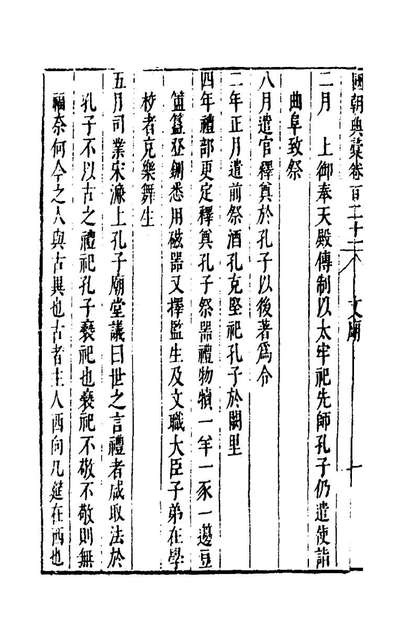 國朝典彙卷百二十一 文廟 一
二月 上御奉天殿傳制以太牢祀先師孔子仍遣使詣
曲阜致祭
八月遣官釋奠於孔子以後著為令
二年正月遣前祭酒孔克堅祀孔子於闕里
四年禮部更定釋奠孔子祭器禮物犢一羊一豕一籩豆
簠簋登鉶悉用磁器又擇監生及文職大臣子弟在學
校者充樂舞生
五月司業宋濂上孔子廟堂議曰世之言禮者咸取法於
孔子不以古之禮祀孔子褻祀也褻祀不敬不敬則無
福奈何今之人與古異也古者主人西向几筵在西也